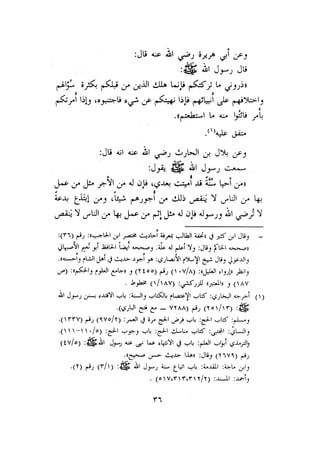 وعن أبي هريرة رضي الله عنه قال:
قال رسول الله ﷺ:
«ذروني ما تركتكم فإنما هلك الذين من قبلكم بكثرة سُؤالهم
واختلافهم على أنبيائهم فإذا نهيتكم عن شيء فاجتنبوه، وإذا أمرتكم
بأمر فائتُوا منه ما استطعتم».
متفق عليه(١).
وعن بلال بن الحارث رضي الله عنه انه قال:
سمعت رسول الله ﷺ يقول:
«من أحيا سُنَّةً قد أُميتت بعدي، فإن له من الأجر مثل من عمل
بها من الناس لا يَنقص ذلك من أجورهم شيئاً، ومن إبتَدَع بدعةً
لا تُرضي الله ورسوله فإن له مثل إثم من عمل بها من الناس لا يَنقص
= وقال ابن كثير في «تحفة الطالب بمعرفة أحاديث مختصر ابن الحاجب»: رقم (٣٦):
«صححه الحاكم وقال: ولا أعلم له علّة. وصححه أيضاً الحافظ أبو نُعيم الأصبهاني
والدغولي وقال شيخ الإسلام الأنصاري: هو أجود حديث في أهل الشام وأحسنه».
وانظر «إرواء الغليل»: (١٠٧/٨) رقم (٢٤٥٥) و «جامع العلوم والحكم»: (ص
١٨٧) و «المعتبر» للزركشي: (١٨٧/١) مخطوط .
(١) أخرجه البخاري: كتاب الإعتصام بالكتاب والسنة: باب الاقتداء بسنن رسول الله
ﷺ: (٢٥١/١٣) رقم (٧٢٨٨ ــ مع فتح الباري).
ومسلم: كتاب الحج: باب فرض الحج مرة في العمر: (٩٧٥/٢) رقم (١٣٣٧).
والنسائي: المجتبى: كتاب مناسك الحج: باب وجوب الحج: (١١٠/٥-١١١).
والترمذي أبواب العلم: باب في الانتهاء عما نهى عنه رسول الله ﷺ: (٤٧/٥)
رقم (٢٦٧٩) وقال: «هذا حديث حسن صحيح».
وابن ماجة: المقدمة: باب اتباع سنة رسول الله ﷺ: (٣/١) رقم (٢).
وأحمد: المسند: (٣١٢/٢، ٣١٣، ٥١٧) .
٣٦